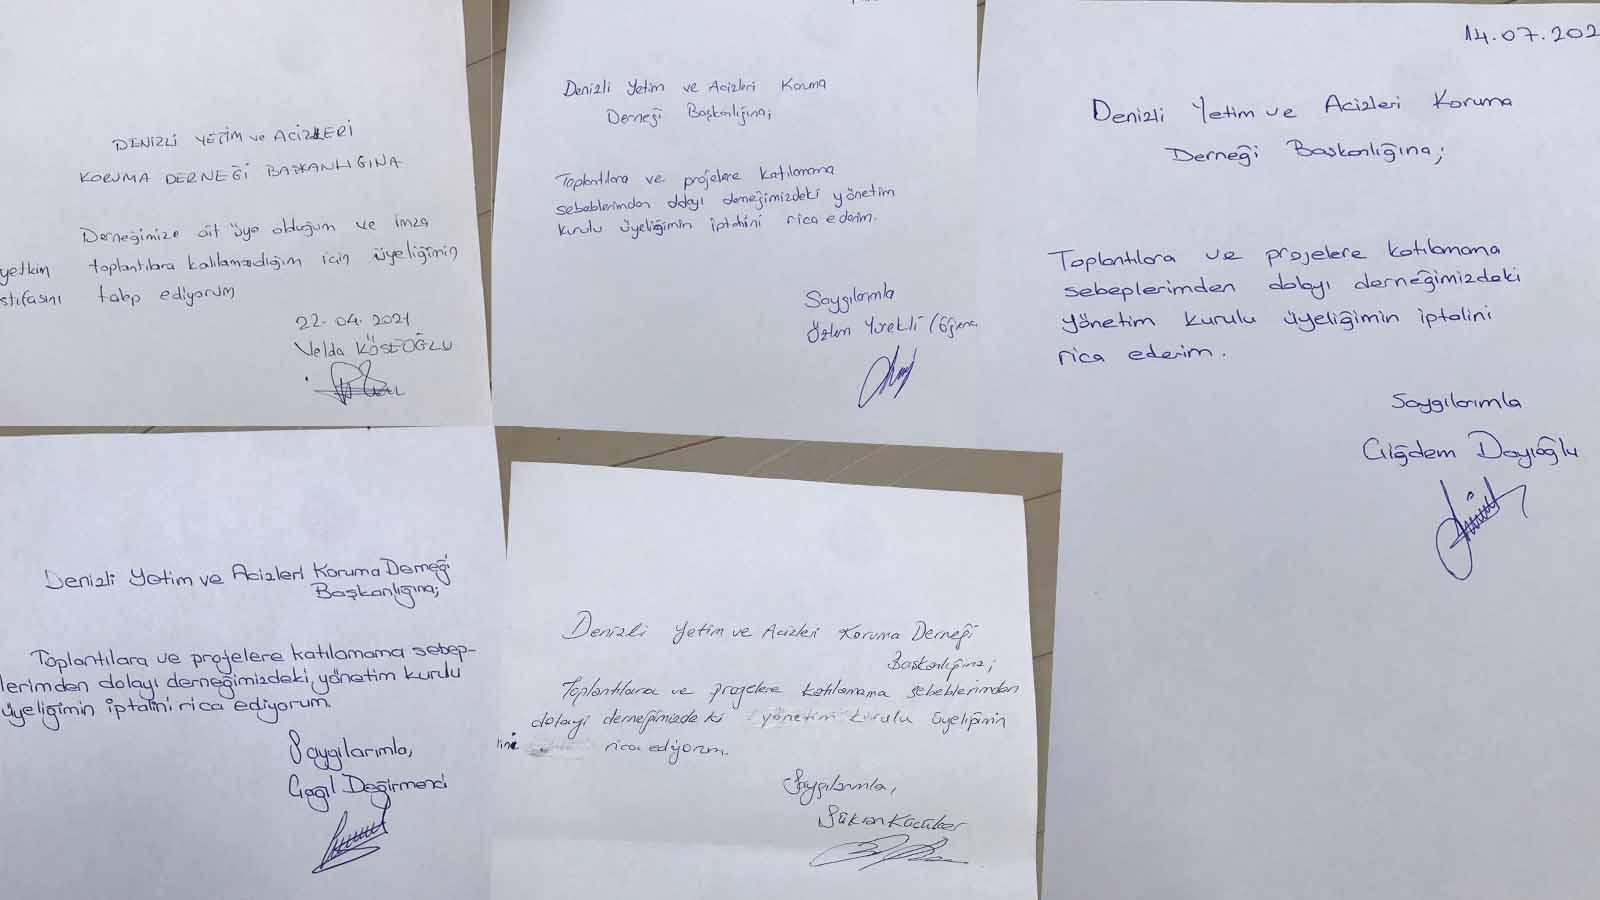 DENİZLİ YETİM ve ACİZLERİ
KORUMA DERNEĞİ BAŞKANLIĞINA
Derneğimize ait üye olduğum ve imza
yetkin toplantılara katılamadığım için üyeliğimin
stifasını talep ediyorum
22.04.2021
Velda KÖSEOĞLU
Denizli Yetim ve Acizleri Koruma
Derneği Başkanlığına;
Toplantılara ve projelere katılamama
sebeblerimden dolayı derneğimizdeki yönetim
kurulu üyeliğimin iptalini rica ederim.
Saygılarımla
Özlem Yürekli (Öğrenc
14.07.202
Denizli Yetim ve Acizleri Koruma
Derneği Başkanlığına;
Toplantılara ve projelere katılamama
sebeplerimden dolayı derneğimizdeki
yönetim kurulu üyeliğimin iptalini
rica ederim.
Saygılarımla
Çiğdem Dayıoğlu
Denizli Yetim ve Acizleri Koruma Derneği
Başkanlığına;
Toplantılara ve projelere katılamama sebep-
lerimden dolayı derneğimizdeki, yönetim kurulu
üyeliğimin iptalini rica ediyorum.
Saygılarımla,
Çağıl Değirmenci
Denizli Yetim ve Acizleri Koruma Derneği
Başkanlığına;
Toplantılara ve projelere katılamama sebeblerimden
dolayı derneğimizde ki yönetim kurulu üyeliğimin
rica ediyorum.
Saygılarımla,
Şükran Küçüker